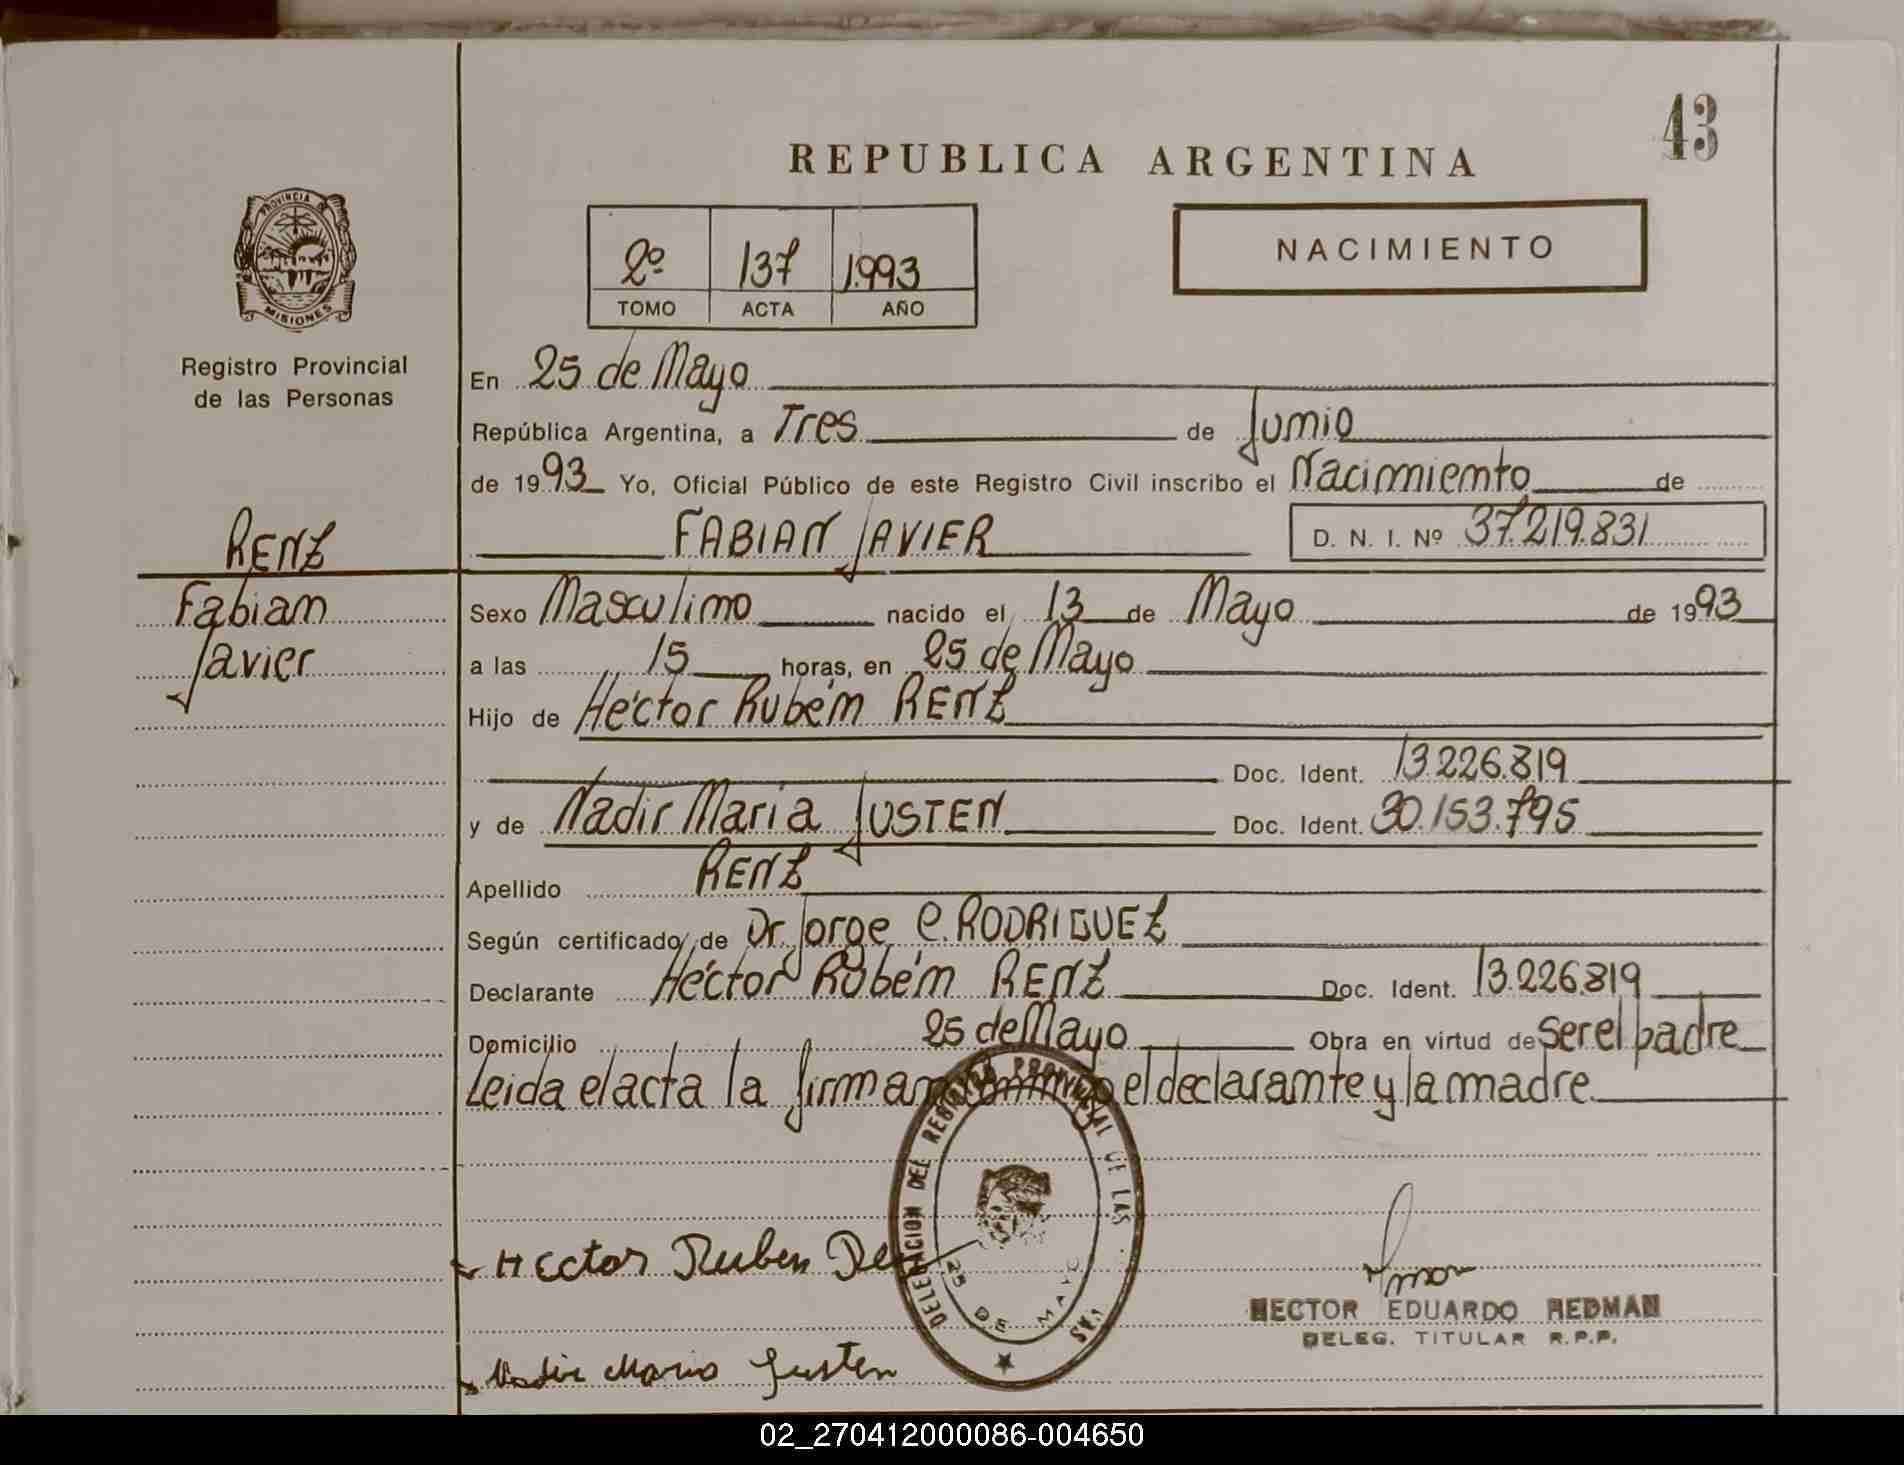 43
REPUBLICA ARGENTINA
PROVINCIA DE
MISIONES
Registro Provincial
de las Personas
2º 137 1.993
TOMO ACTA AÑO
NACIMIENTO
En 25 de Mayo
República Argentina, a Tres de Junio
de 1993 Yo, Oficial Público de este Registro Civil inscribo el Nacimiento de
FABIAN JAVIER D. N. I. Nº 37.219.831
RENZ
Fabian
Javier
Sexo Masculino nacido el 13 de Mayo de 1993
a las 15 horas, en 25 de Mayo
Hijo de Héctor Rubén RENZ
Doc. Ident. 13.226.819
y de Nadir Maria JUSTEN Doc. Ident. 30.153.795
Apellido RENZ
Según certificado de Dr. Jorge C. RODRIGUEZ
Declarante Héctor Rubén RENZ Doc. Ident. 13.226.819
Domicilio 25 de Mayo Obra en virtud de ser el padre
Leida el acta la firman conmigo el declarante y la madre
DELEGACION DEL REGISTRO PROVINCIAL DE LAS
25 DE MAYO
Hector Ruben
HECTOR EDUARDO REDMAN
DELEG. TITULAR R.P.P.
Nadir Maria Justen
02_270412000086-004650